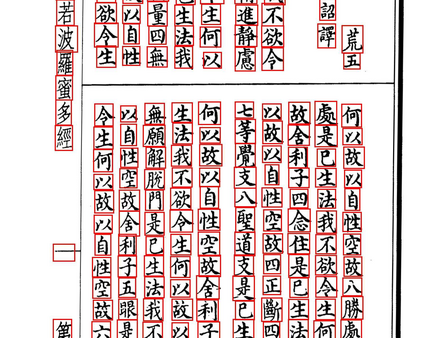 荒五
詔譯
我不欲令
進靜慮
生何以
已生法我
量四無
以自性
欲令生
何以故以自性空故八勝處
處是已生法我不欲令生何
故舍利子四念住是已生法
以故以自性空故四正斷四
七等覺支八聖道支是已生
何以故以自性空故舍利子
生法我不欲令生何以故以
無願解脫門是已生法我不
以自性空故舍利子五眼是
令生何以故以自性空故六
若波羅蜜多經 一 第